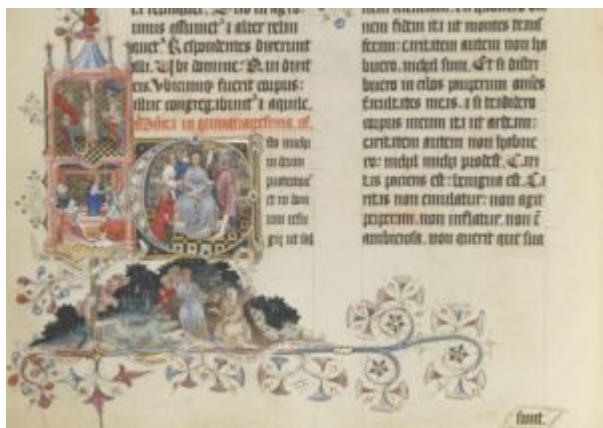 rimus assumet᷑ ⁊ alter relin
quet᷑ Respondentes dixerunt
illi. Ubi domine. Qui dixit
eis. Ubicumq fuerit corpus:
illuc congregabunt᷑ ⁊ aquile.
Dñica in quinquagesima. of.
sto michi
in deum
protectorē
et in locum
refu
gij ut sal
nem fidem ita ut montes trans
feram: caritatem autem non ha
buero. nichil sum. Et si distri
buero in cibos pauperum omēs
facultates meas. ⁊ si tradidero
corpus meum ita ut ardeam:
caritatem autem non habue
ro: nichil michi prodest. Cari
tas paciens est: benigna est. Ca
ritas non emulatur: non agit
perperam. non inflatur. non ē
ambiciosa. non querit que sua
sunt.